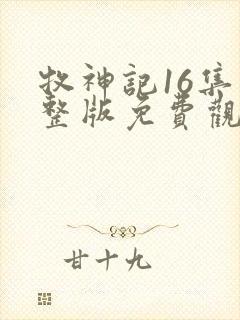 牧神記16集
整版免費觀
甘十九